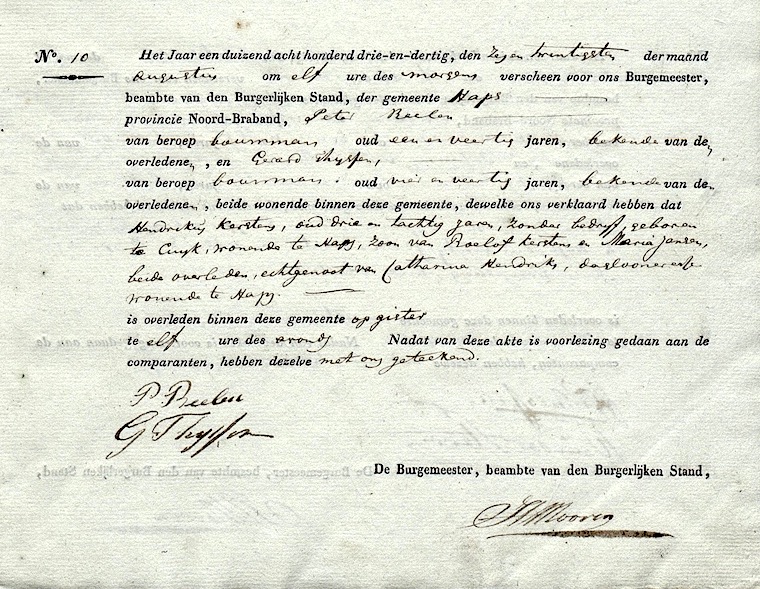 N°. 10 Het Jaar een duizend acht honderd drie-en-dertig, den zes en twintigsten der maand
augustus om elf ure des morgens verscheen voor ons Burgemeester,
beambte van den Burgerlijken Stand, der gemeente Haps
provincie Noord-Braband, Peter Reelen
van beroep bouwman oud een en veertig jaren, bekende van de
overledene, en Gerard Thyssen,
van beroep bouwman oud vier en veertig jaren, bekende van de
overledenen, beide wonende binnen deze gemeente, dewelke ons verklaard hebben dat
Hendrikus Kerstens, oud drie en tachtig jaren, zonder bedryf, geboren
te Cuyk, wonende te Haps, zoon van Roelof Kerstens en Maria Jansen,
beide overleden, echtgenoot van Catharina Hendriks, daglooneresse
wonende te Haps.
is overleden binnen deze gemeente op gister
te elf ure des avonds Nadat van deze akte is voorlezing gedaan aan de
comparanten, hebben dezelve met ons geteekend.
P Reelen
G Thyssen
De Burgemeester, beambte van den Burgerlijken Stand,